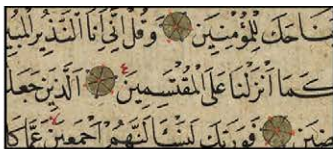 ناحَكَ لِلْمُؤْمِنِينَ وَقُلْ اِنِّي اَنَا النَّذِيرُ الْمُبِي
كَمَا اَنْزَلْنَا عَلَى الْمُقْتَسِمِينَ اَلَّذِينَ جَعَلُ
ضِينَ فَوَرَبِّكَ لَنَسْأَلَنَّهُمْ اَجْمَعِينَ عَمَّا كَا